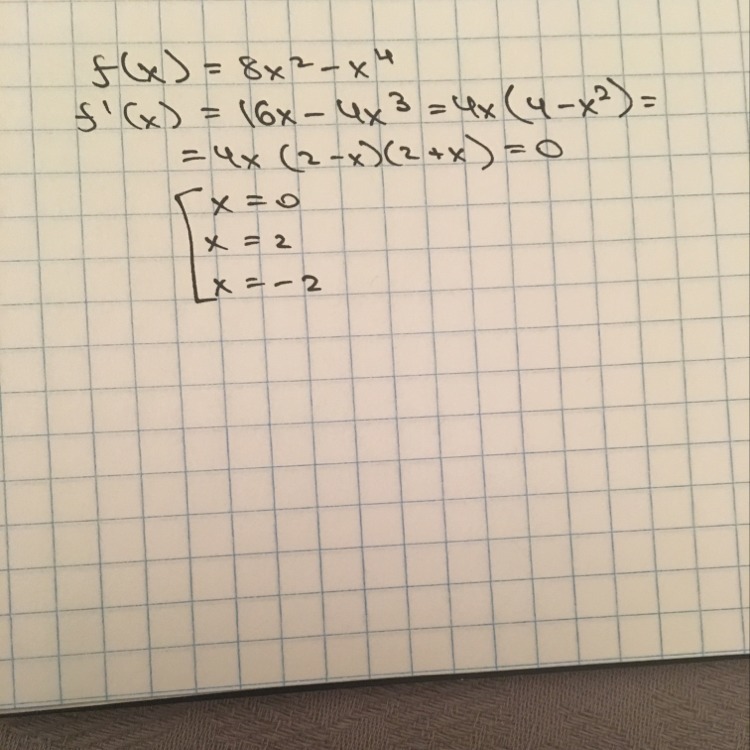 f(x) = 8x² - x⁴
f'(x) = 16x - 4x³ = 4x(4 - x²) =
= 4x (2 - x)(2 + x) = 0
[ x = 0
x = 2
x = - 2